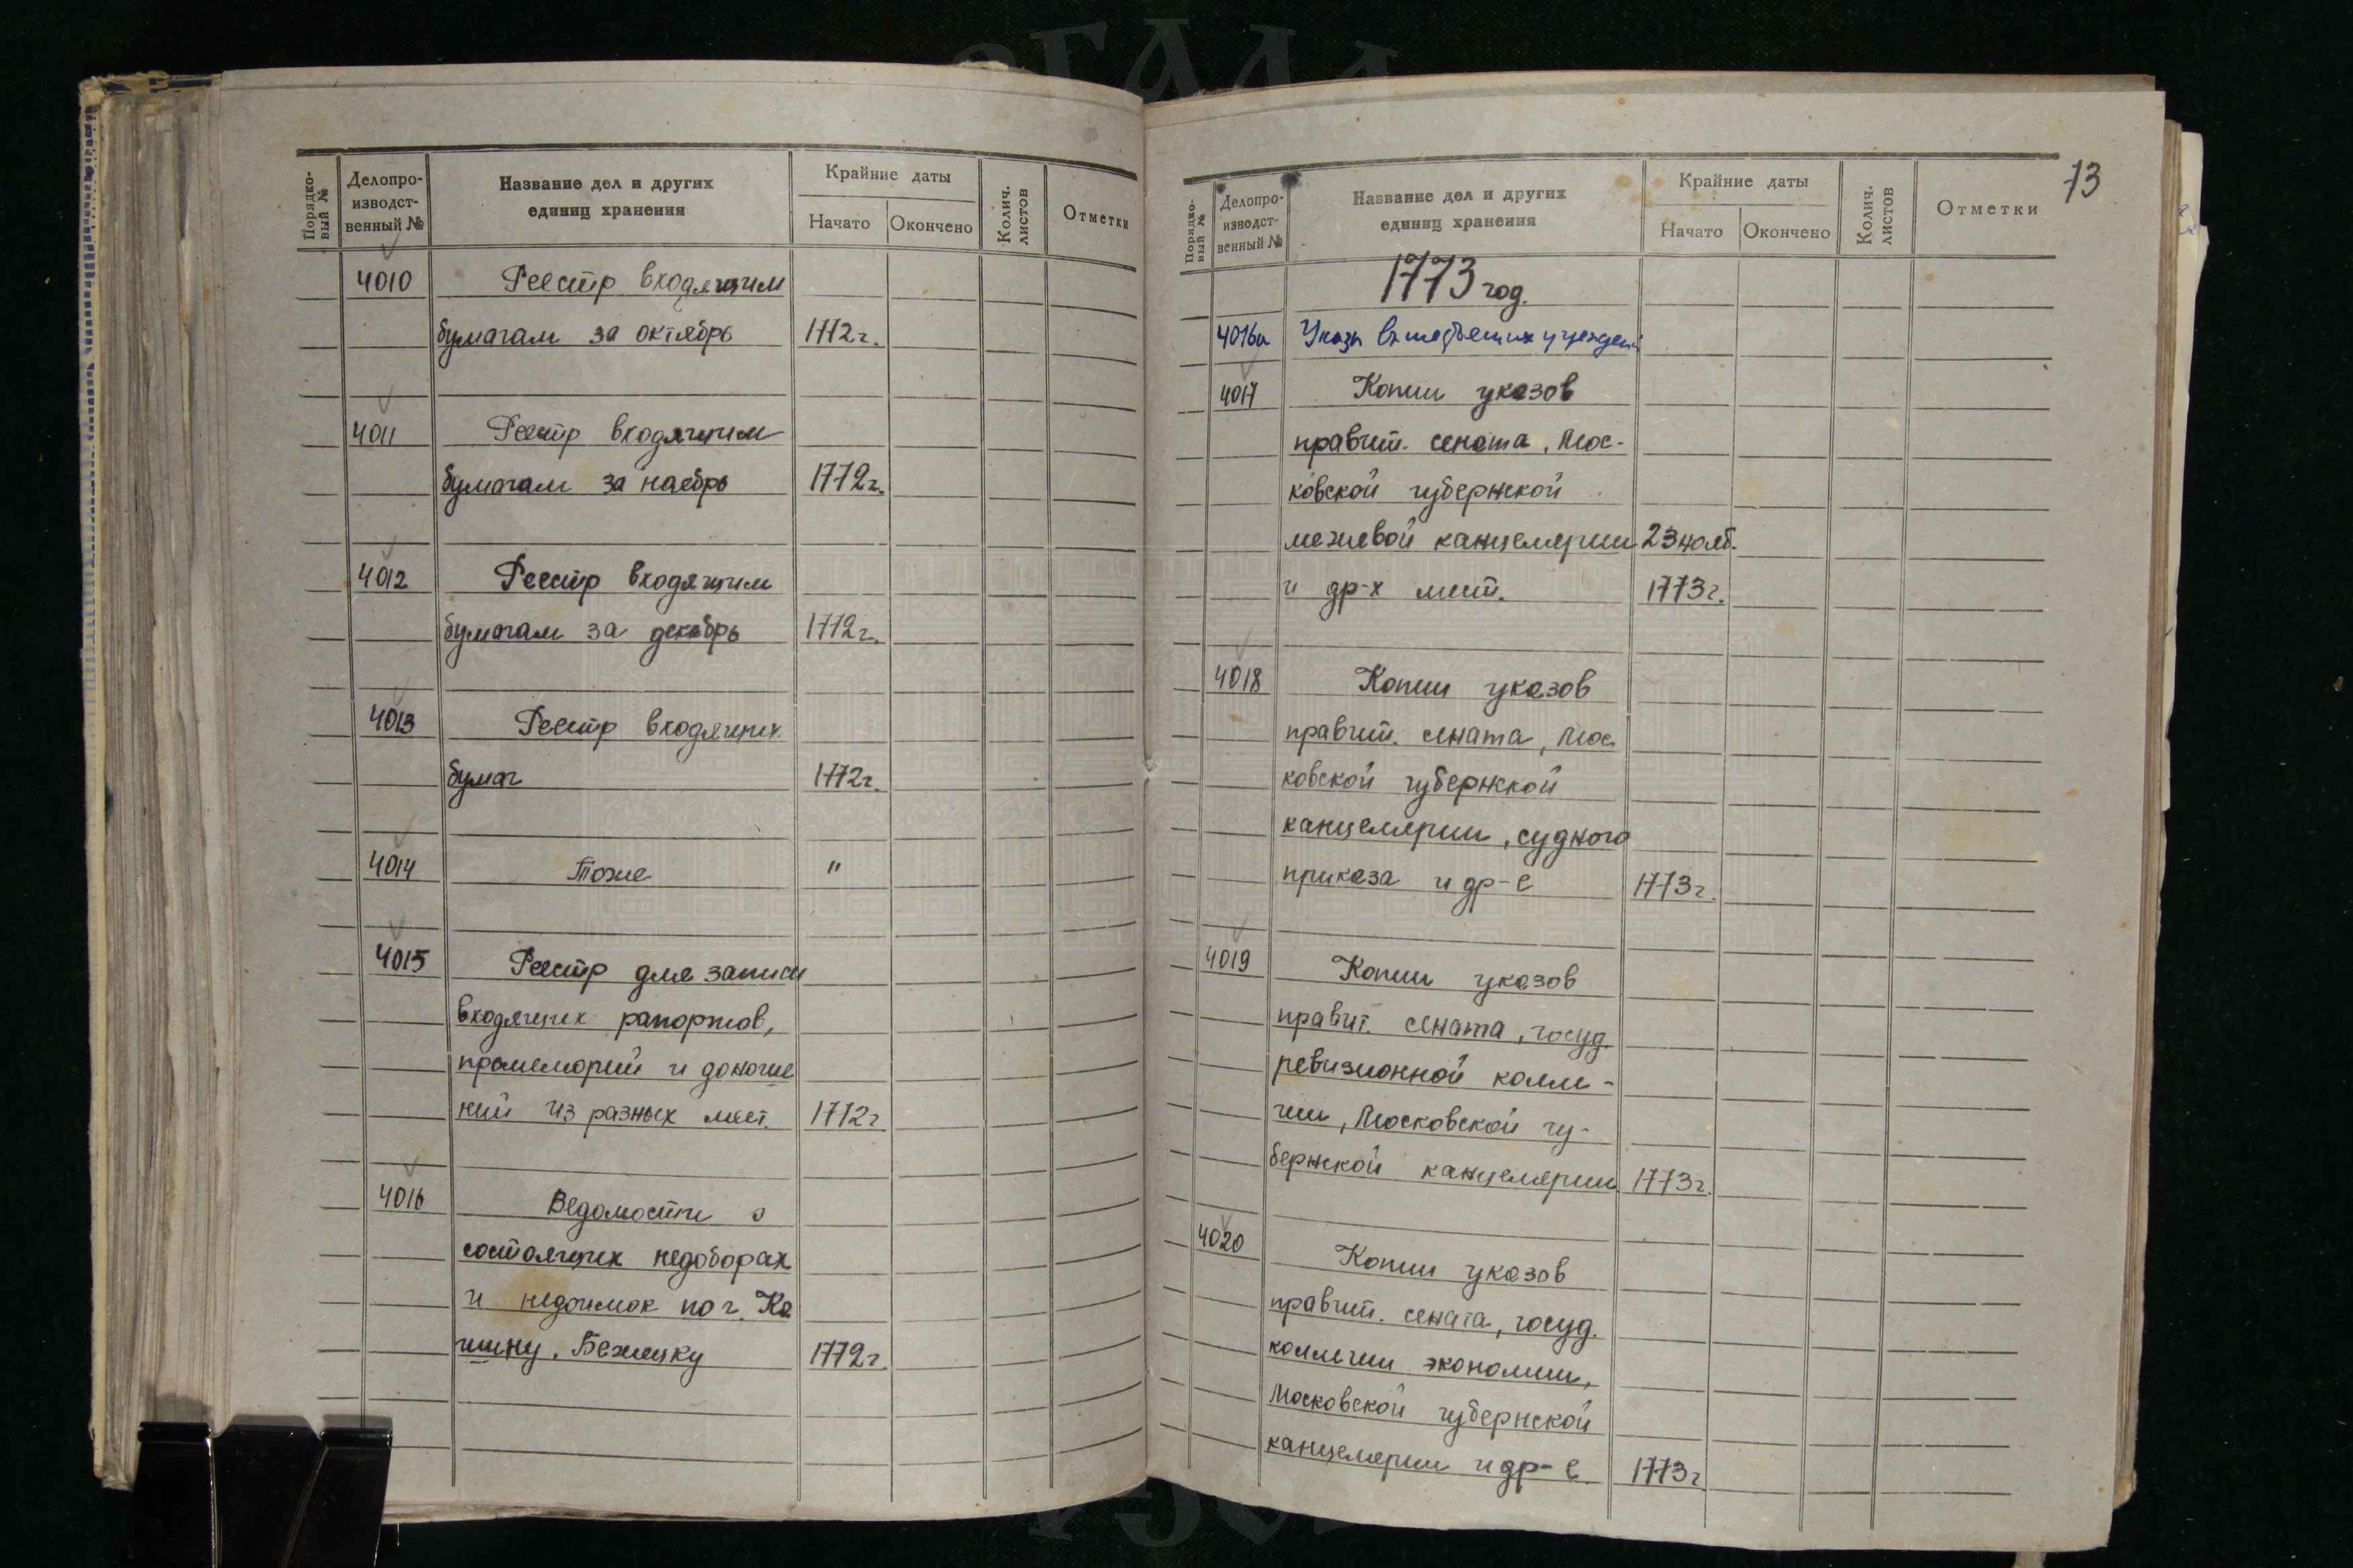 РГАДА
Порядко-
вый №
Делопро-
изводст-
венный №
Название дел и других
единиц хранения
Крайние даты
Начато
Окончено
Колич.
листов
Отметки
4010 Реестр входящим
бумагам за октябрь 1772 г.
4011 Реестр входящим
бумагам за наябрь 1772 г.
4012 Реестр входящим
бумагам за декабрь 1772 г.
4013 Реестр входящих
бумаг 1772 г.
4014 Тоже "
4015 Реестр для записи
входящих рапортов,
промеморий и доноше
ний из разных мест. 1772 г.
4016 Ведомости о
состоящих недоборах
и недоимок по г. Ка
шину, Бежецку 1772 г.
73
Порядко-
вый №
Делопро-
изводст-
венный №
Название дел и других
единиц хранения
Крайние даты
Начато
Окончено
Колич.
листов
Отметки
1773 год.
4016а Указы вышестоящих учрежден
4017 Копии указов
правит. сената, Мос-
ковской губернской
межевой канцелярии 23 нояб.
и др-х мест. 1773 г.
4018 Копии указов
правит. сената, Мос
ковской губернской
канцелярии, судного
приказа и др-е 1773 г.
4019 Копии указов
правит. сената, госуд.
ревизионной колле-
гии, Московской гу-
бернской канцелярии 1773 г.
4020 Копии указов
правит. сената, госуд.
коллегии экономии,
Московской губернской
канцелярии и др-е 1773 г